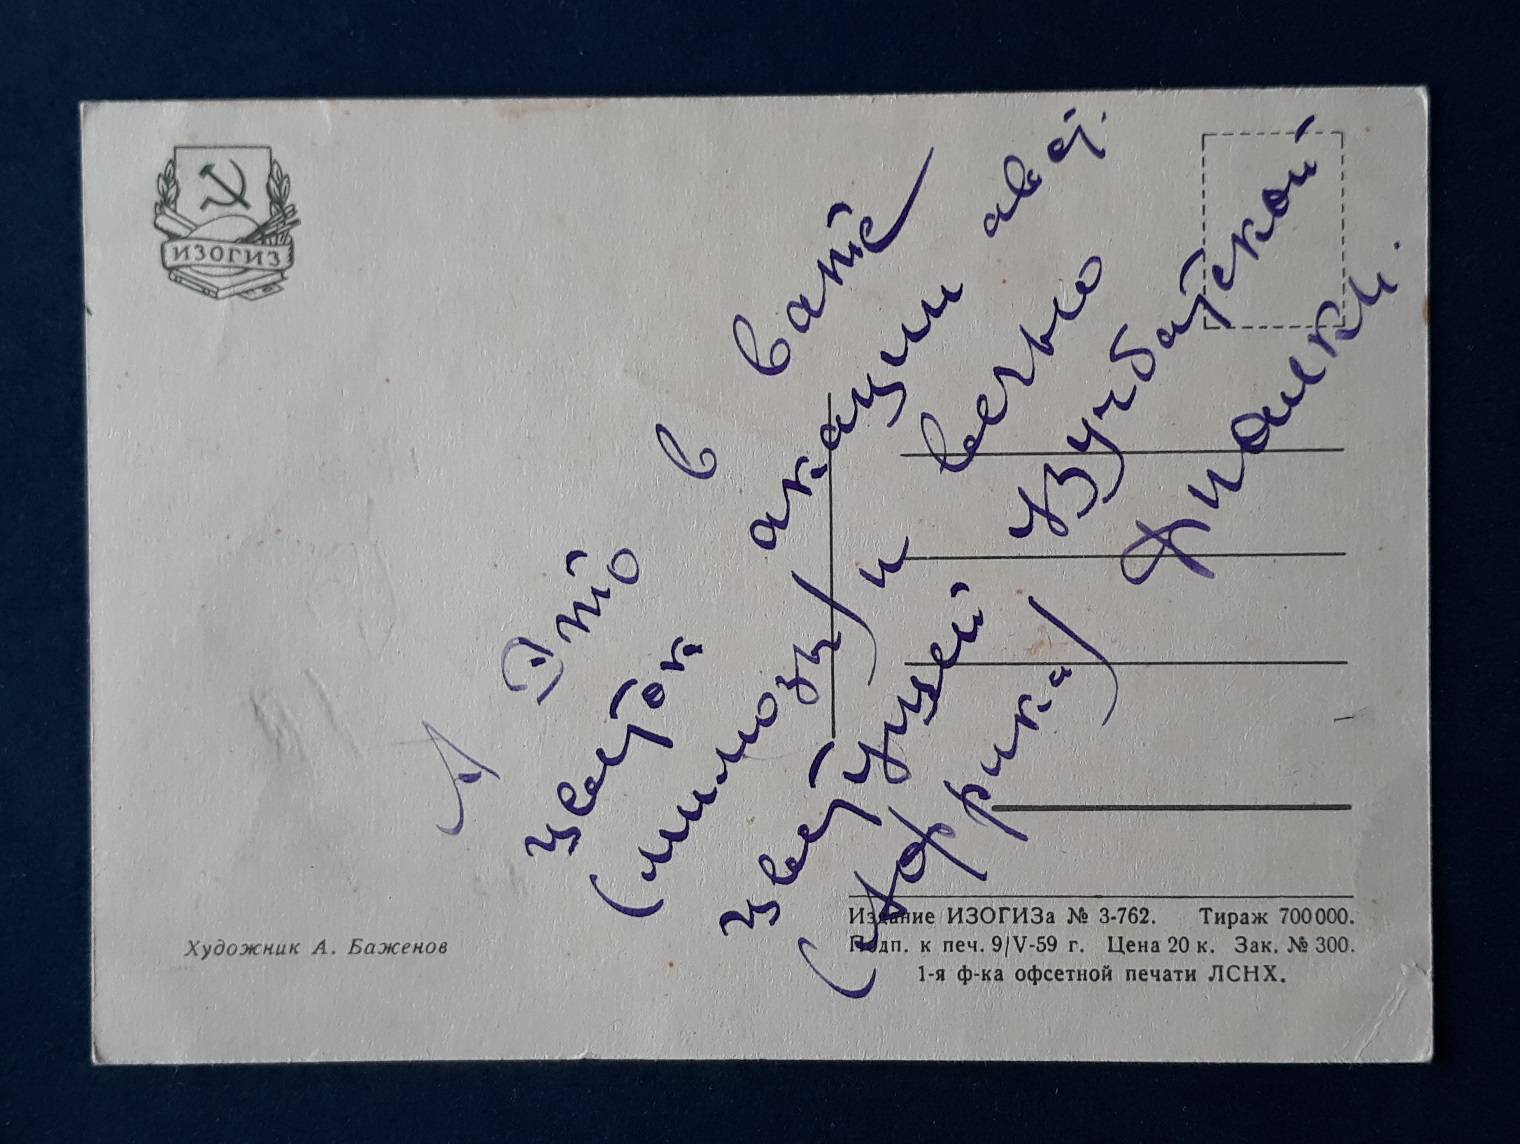 ИЗОГИЗ
А это в вате
цветок акации авст.
(мимозы) и вечно
цветущей узумбатской
(африка) фиалки.
Художник А. Баженов
Издание ИЗОГИЗа № 3-762. Тираж 700000.
Подп. к печ. 9/V-59 г. Цена 20 к. Зак. № 300.
1-я ф-ка офсетной печати ЛСНХ.